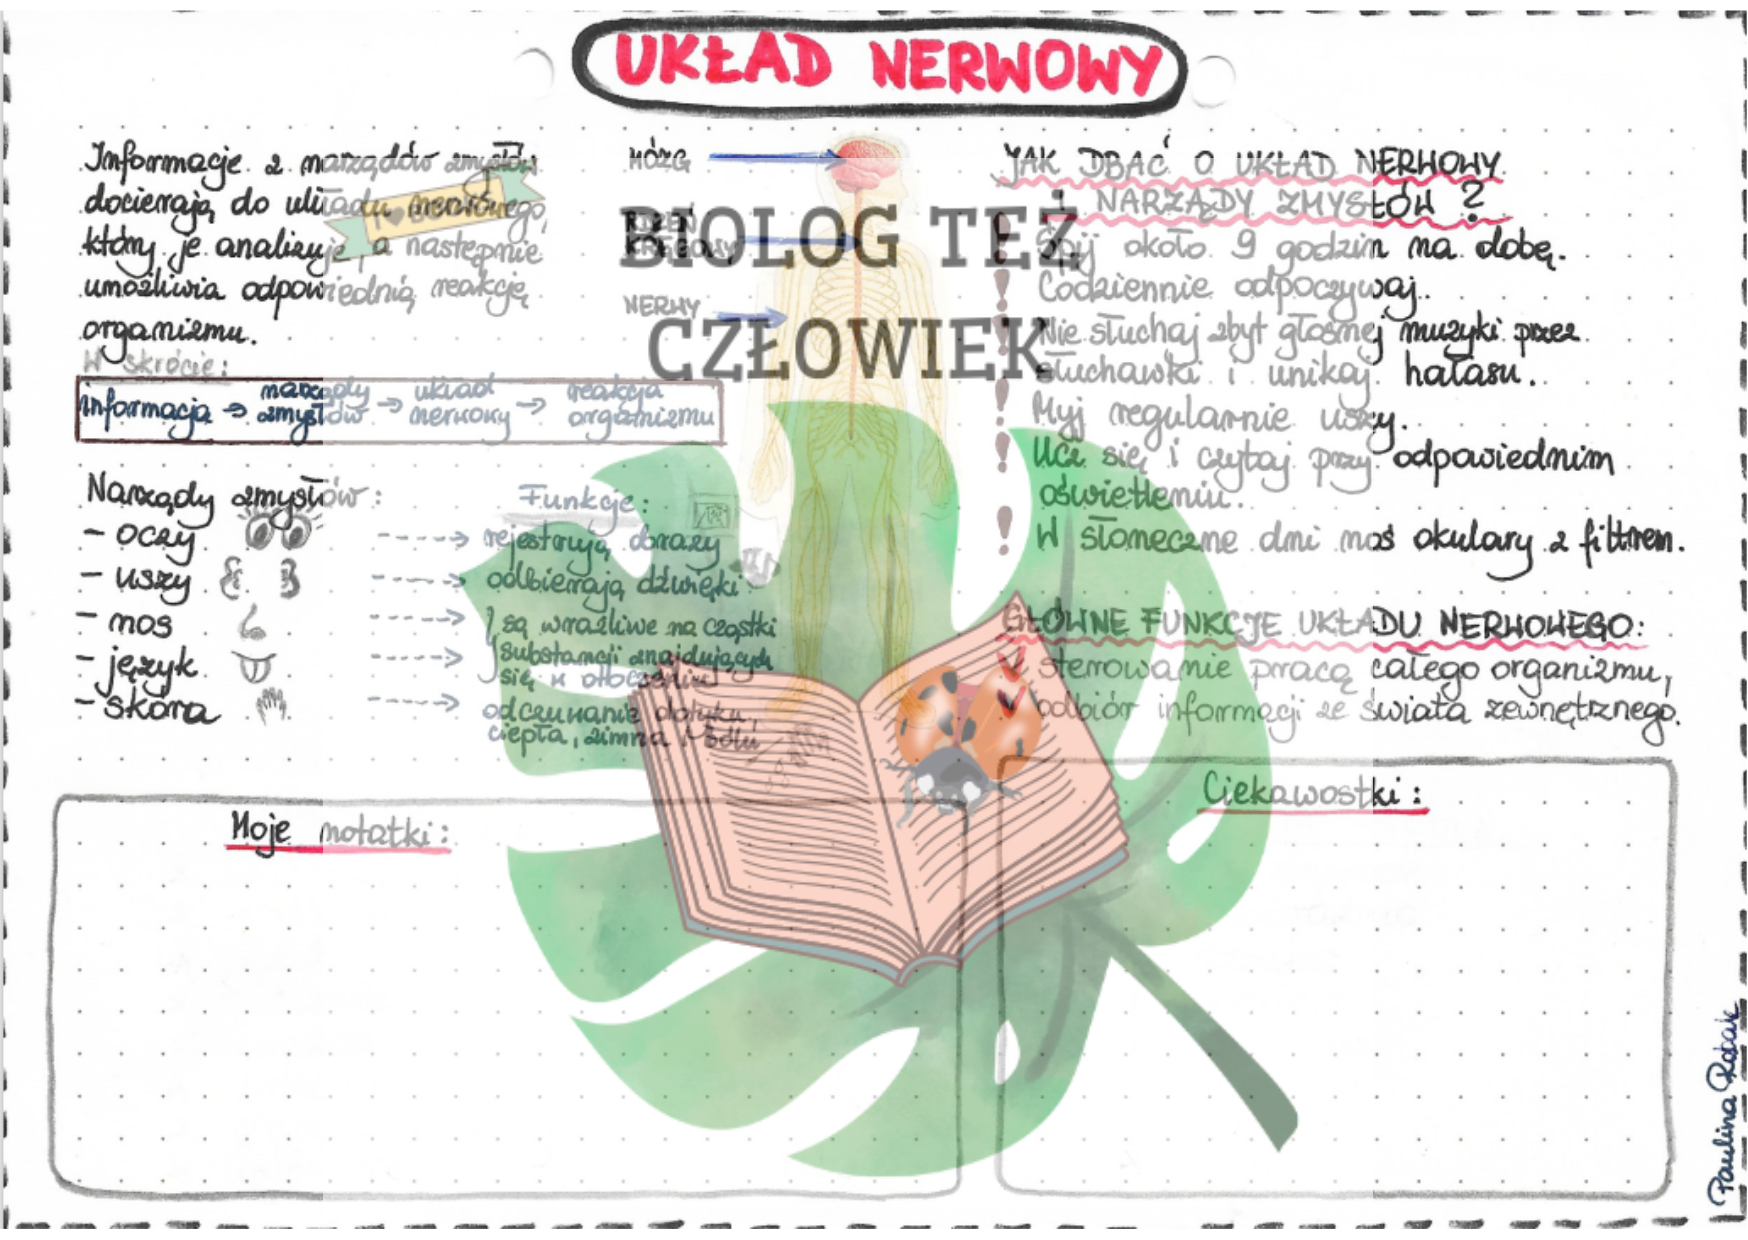 UKŁAD NERWOWY
Informacje z narządów zmysłów
docierają do układu nerwowego,
który je analizuje, a następnie
umożliwia odpowiednią reakcję
organizmu.
W skrócie:
informacja → narządy zmysłów → układ nerwowy → reakcja organizmu
Narządy zmysłów:
Funkcje:
- oczy
rejestrują obrazy
- uszy
odbierają dźwięki
- nos
- język
są wrażliwe na cząstki
substancji znajdujących
się w otoczeniu
- skóra
odczuwanie dotyku,
ciepła, zimna i bólu
MÓZG
RDZEŃ
KRĘGOWY
NERWY
BIOLOG TEŻ
CZŁOWIEK
JAK DBAĆ O UKŁAD NERWOWY
I NARZĄDY ZMYSŁÓW ?
! Śpij około 9 godzin na dobę.
! Codziennie odpoczywaj.
! Nie słuchaj zbyt głośnej muzyki przez
słuchawki i unikaj hałasu.
! Myj regularnie uszy.
! Ucz się i czytaj przy odpowiednim
oświetleniu.
! W słoneczne dni noś okulary z filtrem.
GŁÓWNE FUNKCJE UKŁADU NERWOWEGO:
sterowanie pracą całego organizmu,
odbiór informacji ze świata zewnętrznego.
Moje notatki:
Ciekawostki:
Paulina Ratak